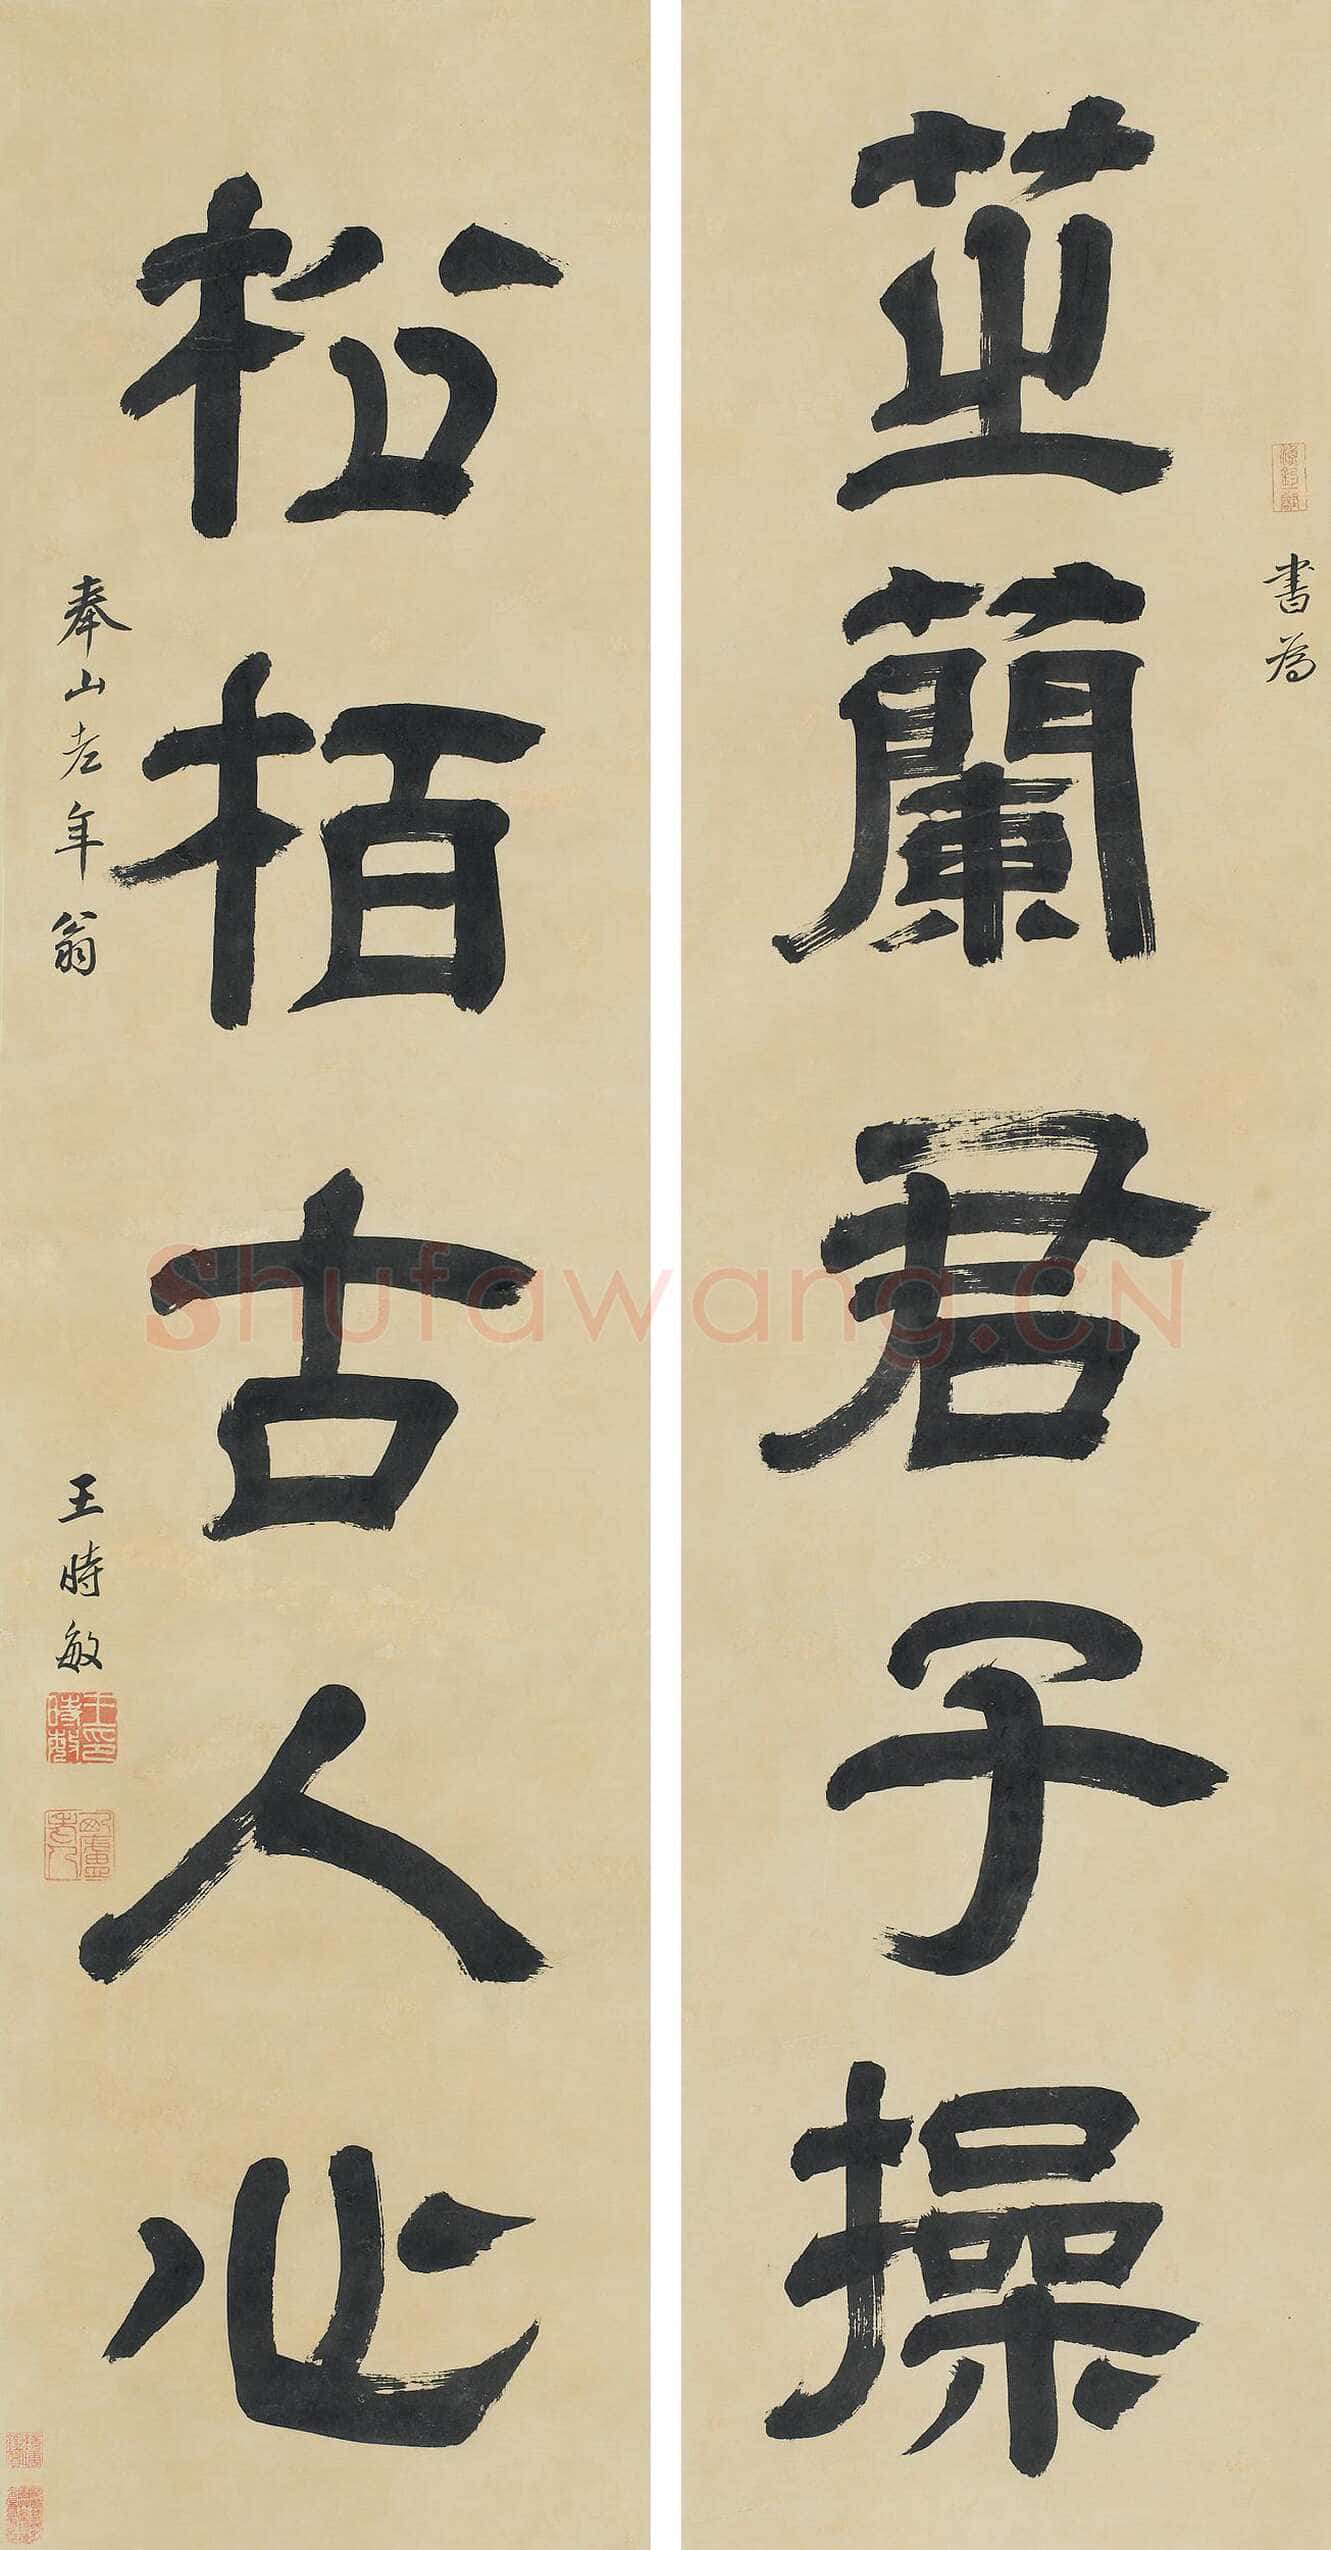 書為
芷蘭君子操
松栢古人心
奉山老年翁
王時敏
Shufawang.CN